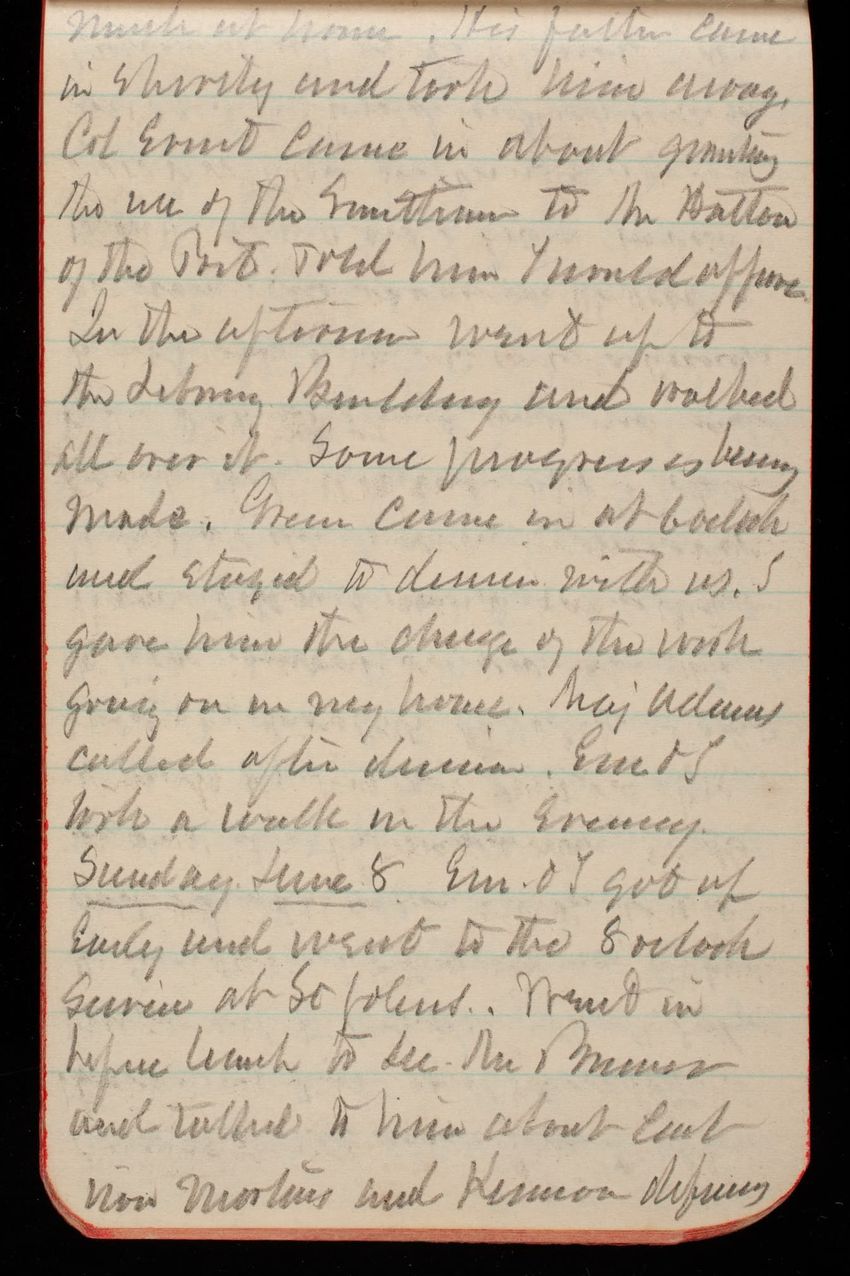 much at home. His father came
in shortly and took him away.
Col Ernst came in about granting
the use of the to the Hatton
of the Post. Told him I would approve.
In the afternoon went up to
the Library Building and walked
all over it. Some progress is being
made. Green came in at 6 oclock
and stayed to dinner with us. I
gave him the charge of the work
going on in my house. Maj Adams
called after dinner. Em & I
took a walk in the evening.
Sunday June 8 Em. & I got up
Early and went to the 8 oclock
Service at St Johns.. Went in
before lunch to see the
and talked to him about Cast
iron Mortars and defining